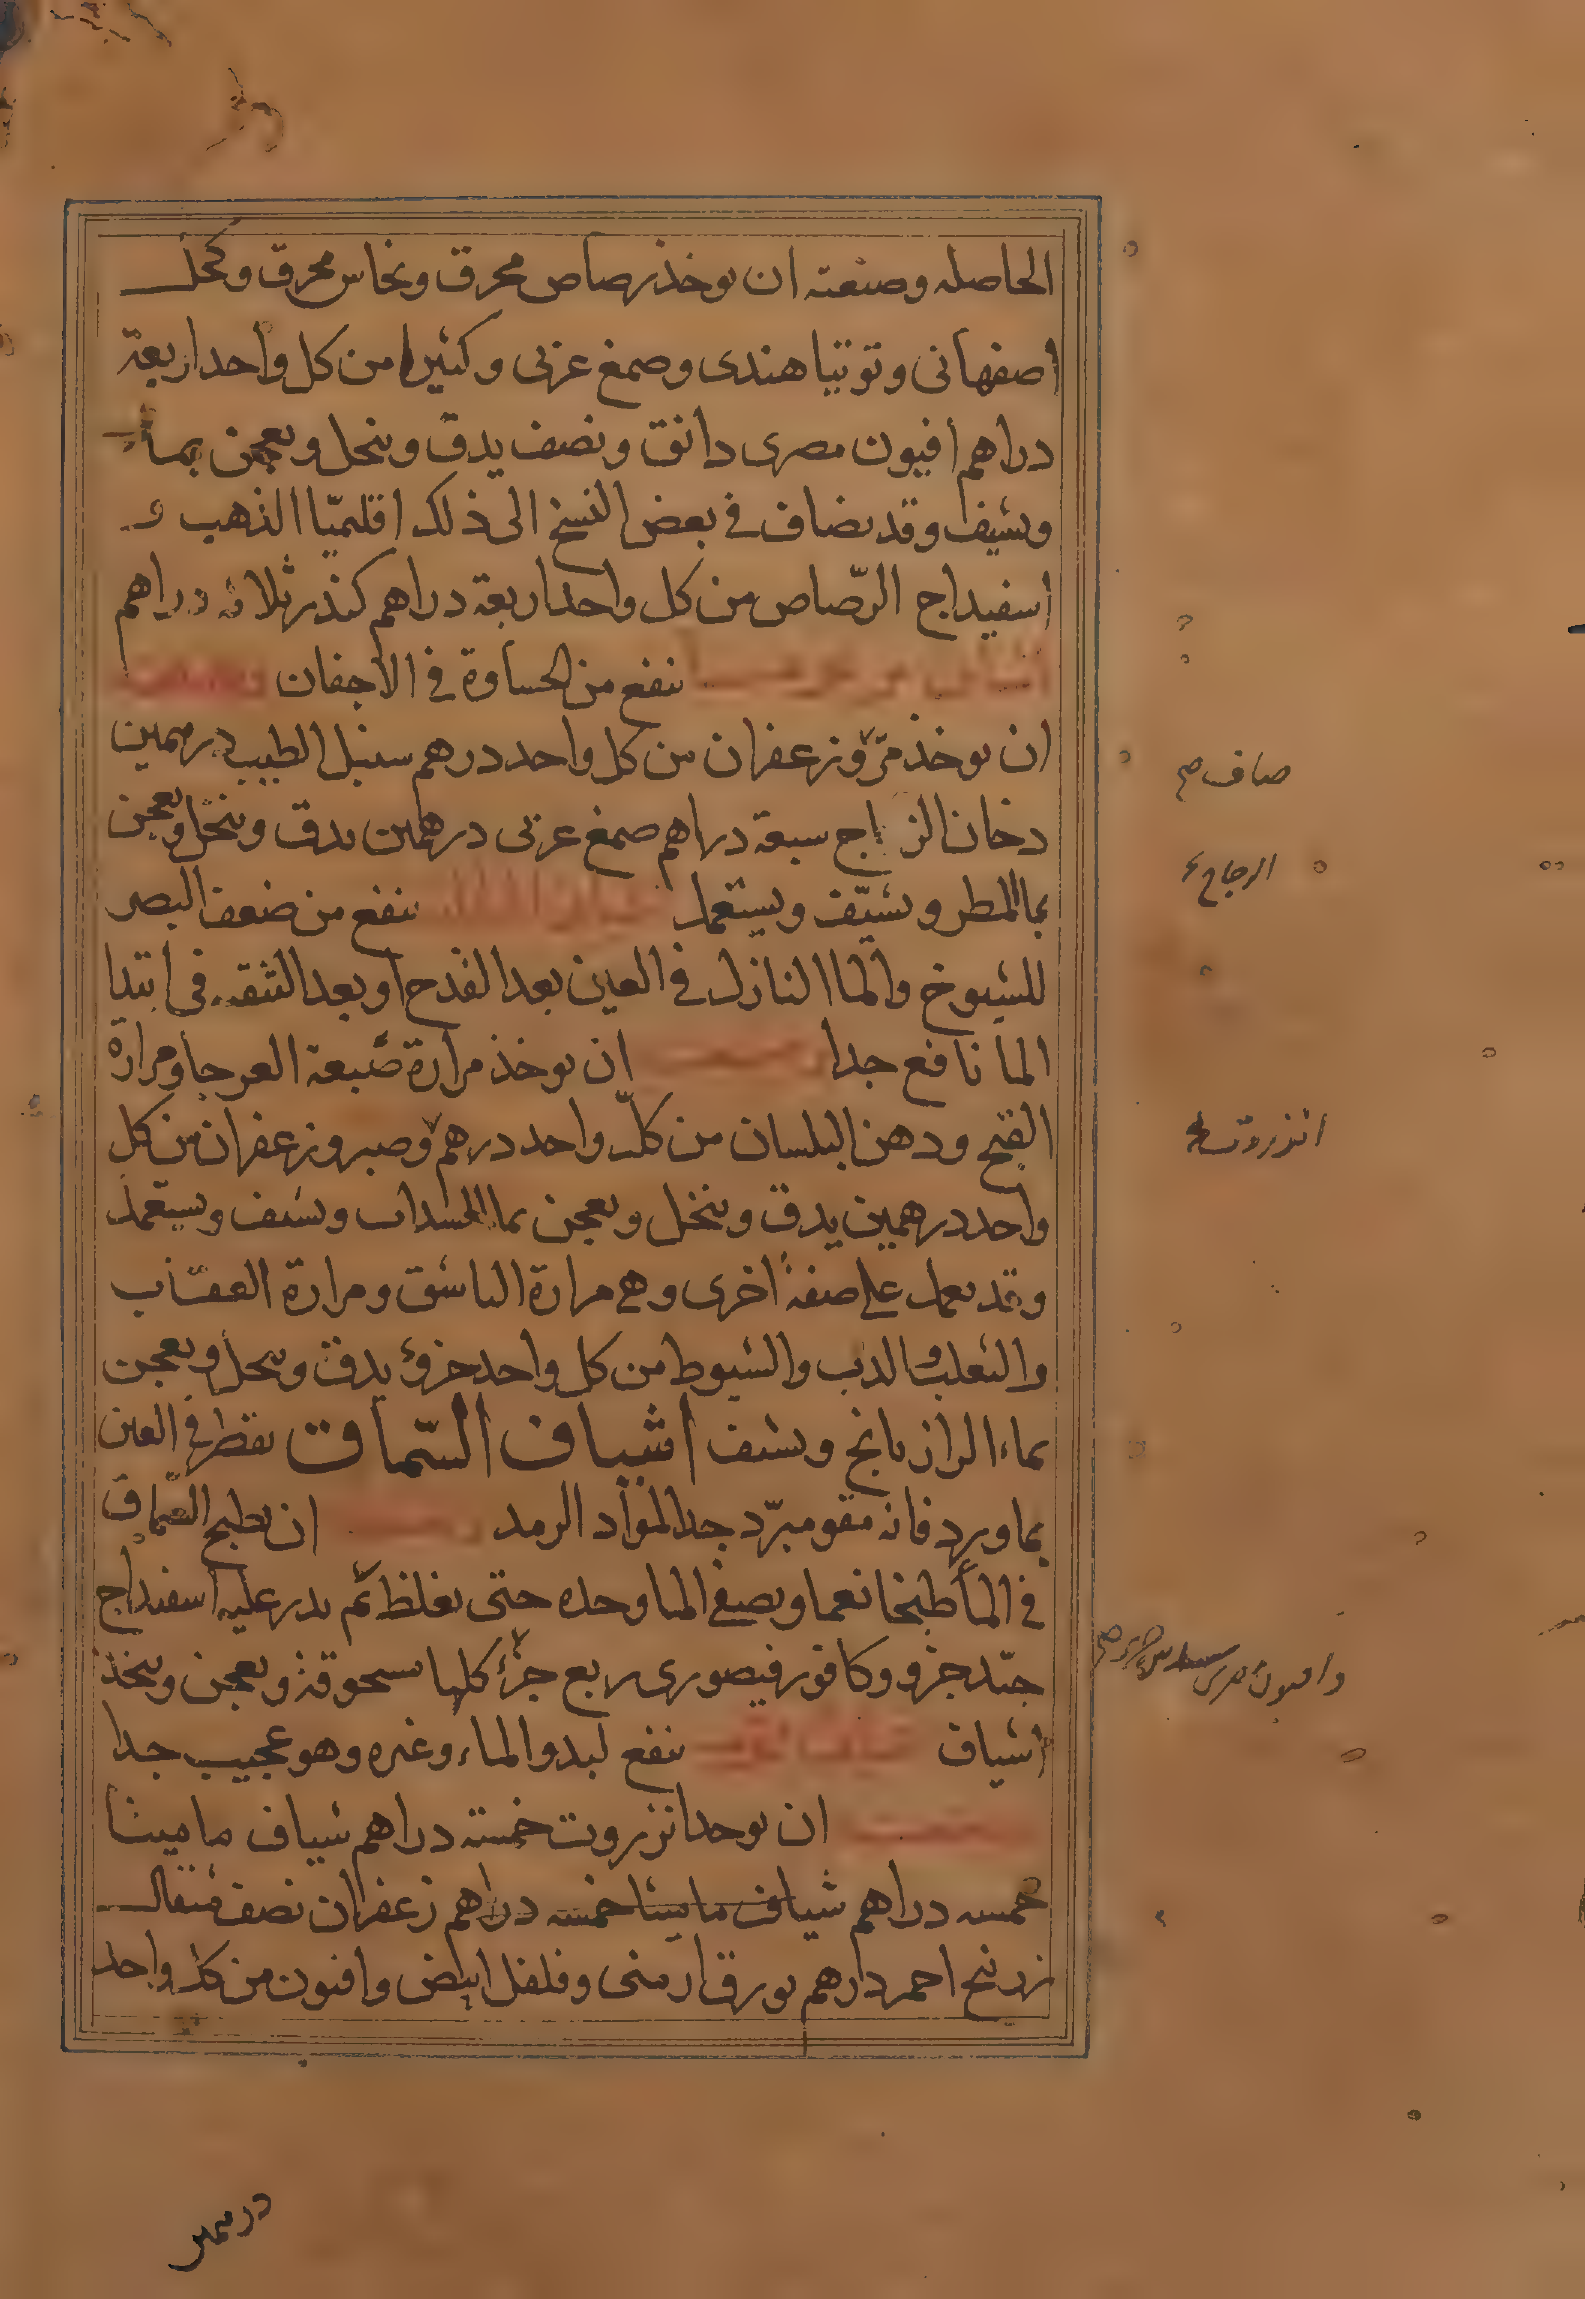 الحاصله وصنعته ان يوخذ رصاص محرق ونحاس محرق وكحل
اصفهانى وتوتيا هندى وصمغ عربى وكثيرا من كل واحد اربعة
دراهم افيون مصرى دانق ونصف يدق وينخل ويعجن بماء
ويشيف وقد يضاف فى بعض النسخ الى ذلك اقليميّا الذهب و
اسفيداج الرّصاص من كل واحد اربعة دراهم كندر ثلاثة دراهم
ينفع من الجساوة فى الاجفان
ان يوخذ مرّ وزعفران من كل واحد درهم سنبل الطيب درهمين
دخان الزجاج سبعة دراهم صمغ عربى درهمين يدق وينخل ويعجن
بماالمطر ويشيّف ويستعمل ينفع من ضعف البصر
للشيوخ والماالنازل فى العين بعد القدح او بعد التنقيه فى ابتدا
الما نافع جدا ان يوخذ مرارة ضبعة العرجا ومرارة
القبج ودهن البلسان من كلّ واحد درهم وصبر وزعفران من كل
واحد درهمين يدق وينخل ويعجن بماالسداب ويشيف ويستعمل
وقد يعمل على صفة اخرى وهى مرارة الباشق ومرارة العقاب
والثعلب والدب والشبوط من كل واحد جزؤ يدق وينخل ويعجن
بماء الرازيانج ويشيف اشياف السّماق يقطر فى العين
بماورد فانه مقو مبرّد جدا لمواد الرمد ان يطبخ السّماق
فى الماء طبخا نعما ويصفى الما وحده حتى يغلظ ثم يذر عليه اسفيداج
جيّد جزو وكافور فيصورى ربع جزؤ كلها مسحوقة ويعجن ويتخذ
اشياف ينفع لبدو الماء وغيره وهو عجيب جدا
ان يوخذ انزروت خمسة دراهم شياف ماميثا
خمسه دراهم شياف ماميثا خمسه دراهم زعفران نصف مثقال
زرنيخ احمر دارهم بورق ارمنى وفلفل ابيض وافيون من كل واحد
صاف صح
الزجاج
انزروت
وافيون مصرى
درهمين